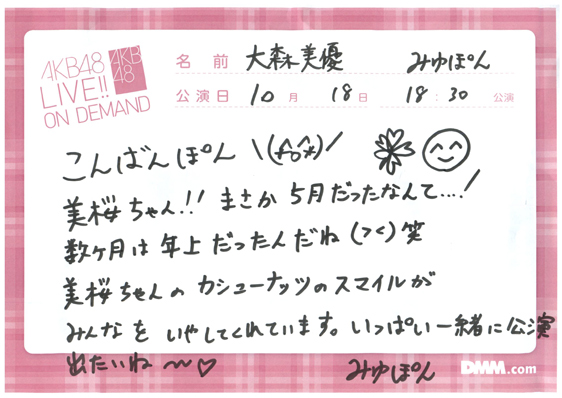 AKB48
LIVE!!
ON DEMAND
AKB
48
名前 大森美優 みゆぽん
公演日 10月 18日 18:30 公演
こんばんぽん \(^o^*)/
美桜ちゃん!! まさか 5月だったなんて....!
数ヶ月は年上だったんだね (つく) 笑
美桜ちゃんの カシューナッツのスマイルが
みんなを いやしてくれています。いっぱい一緒に公演
出たいね 〜♡ みゆぽん
DMM.com